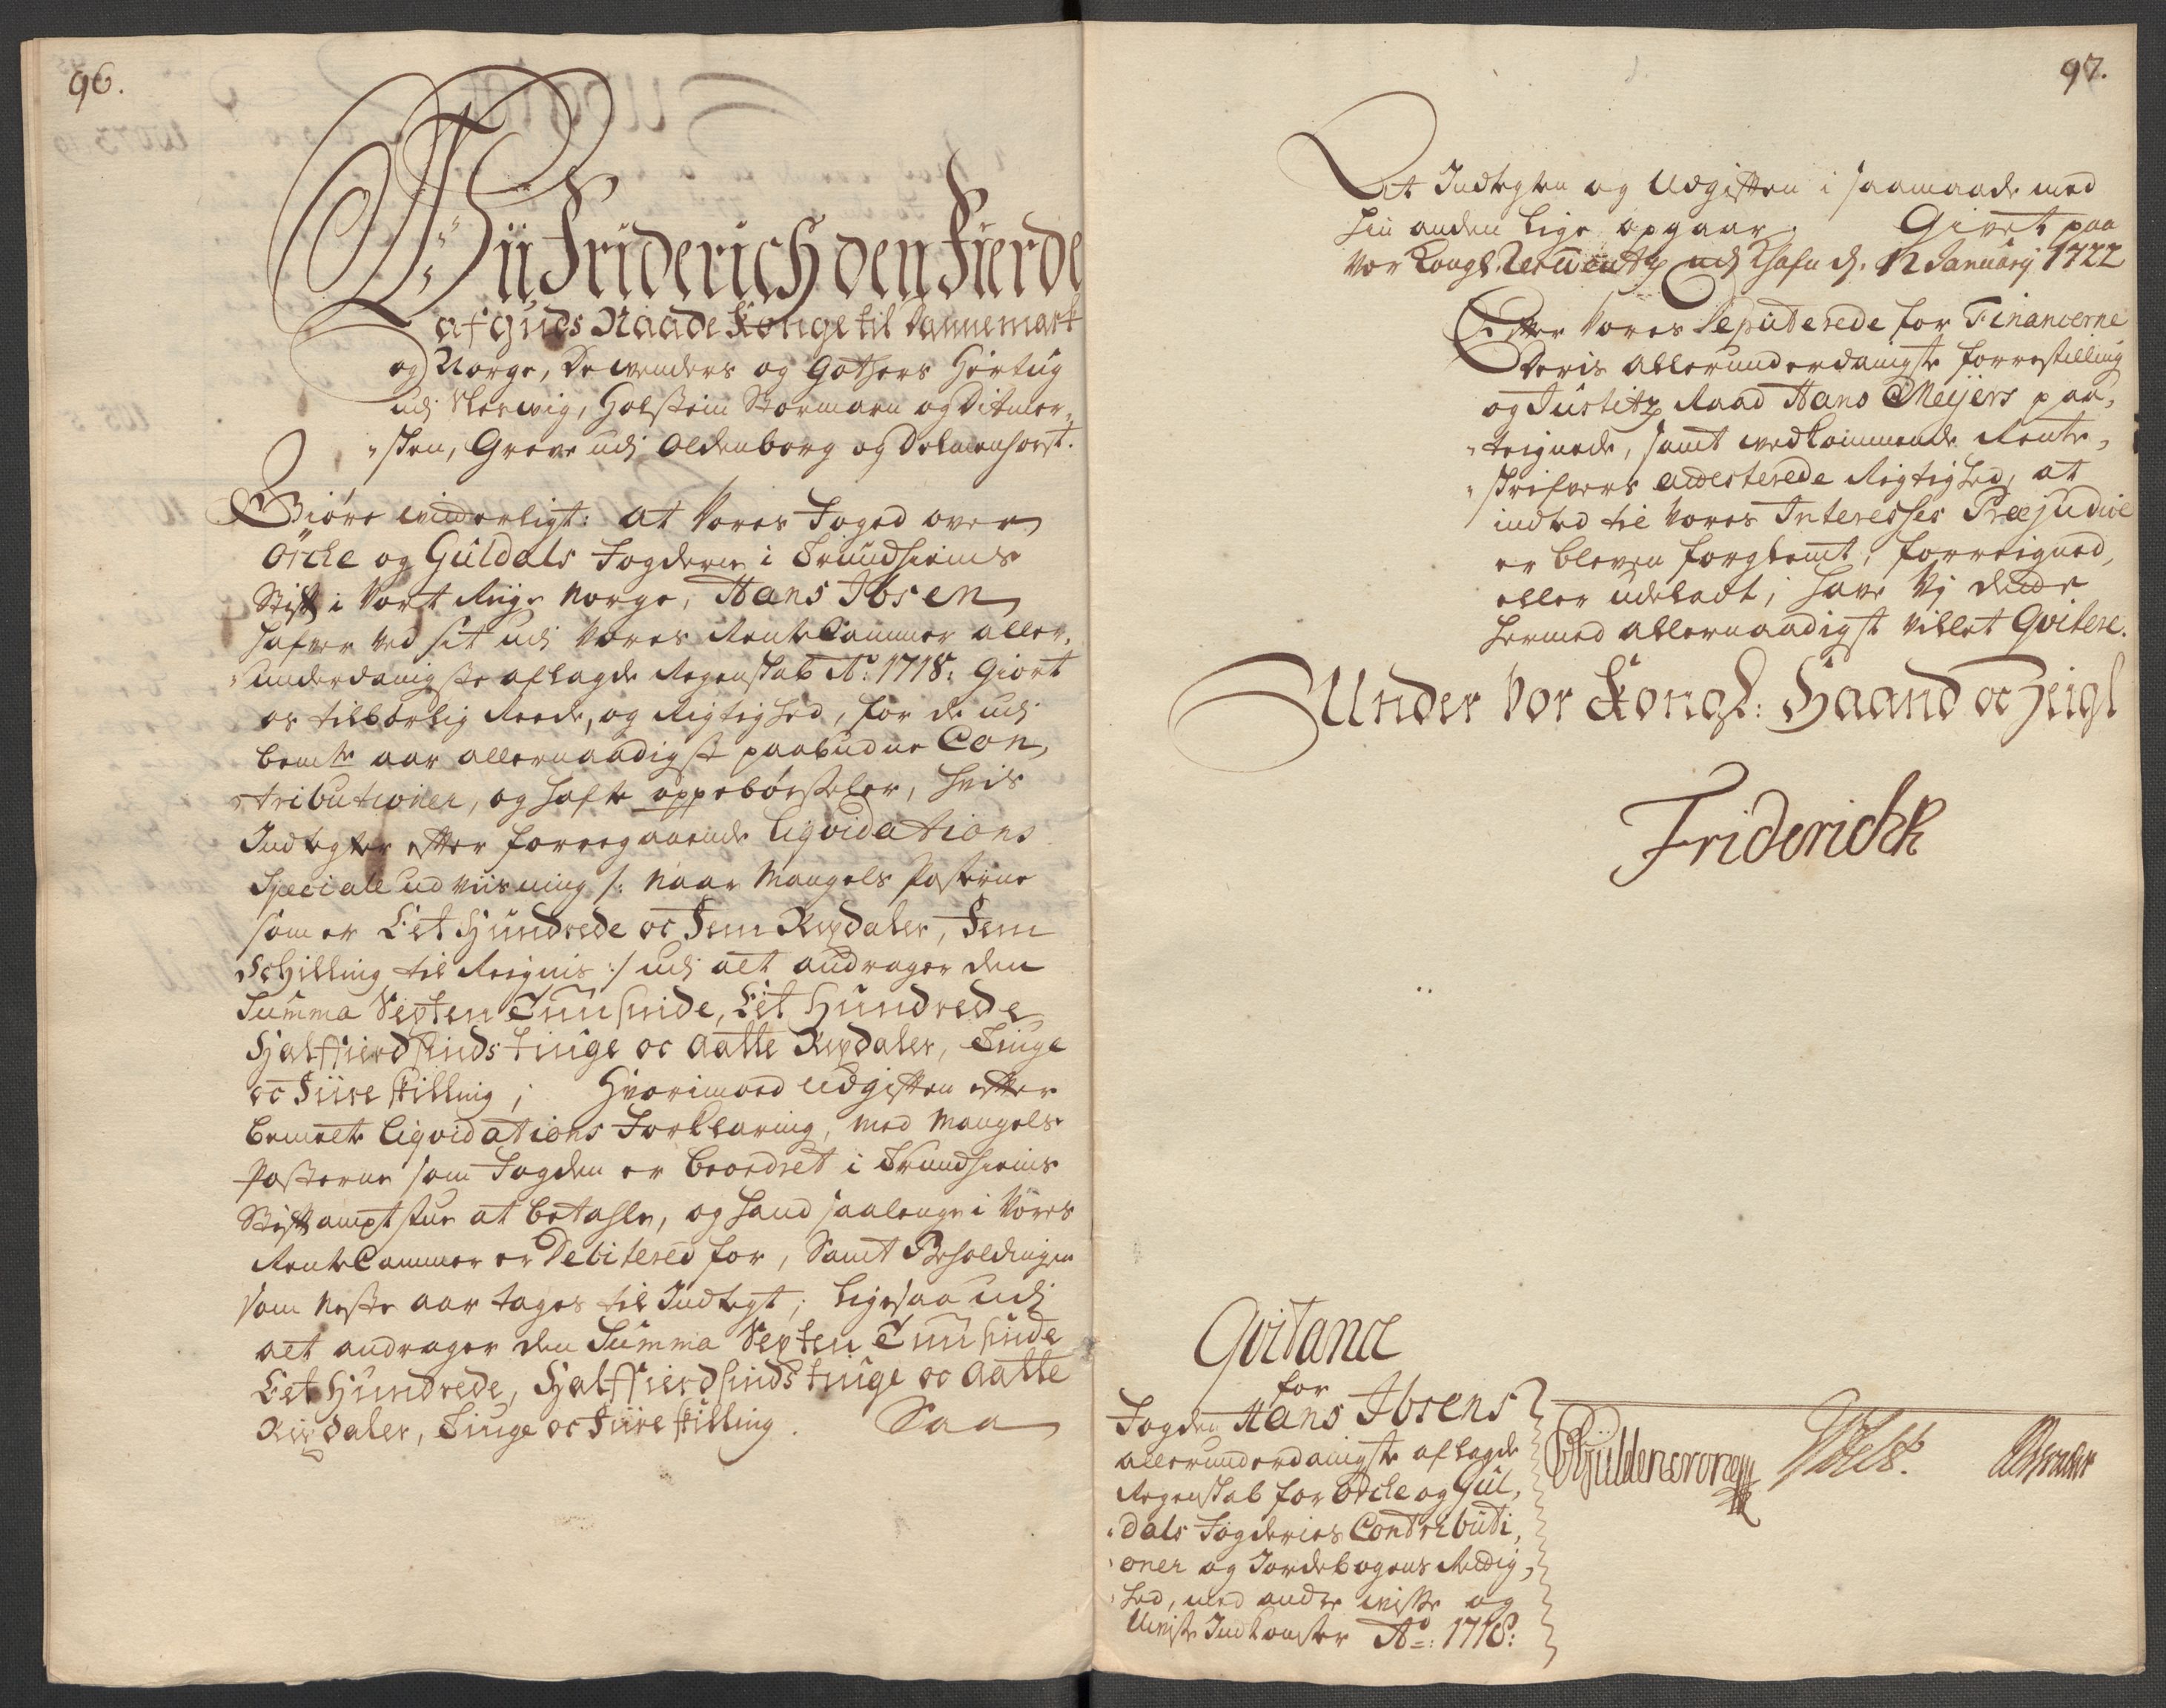 96.
Wii Friderich den Fierde
af Guds Naade Konge til Dannemark
og Norge, De Wenders og Gothers Hertug
udj Slesvig, Holstein Stormarn og Ditmer-
"sken, Greve udj Oldenborg og Delmenhorst.
Giöre vitterligt: at Vores Foged over
Örche og Guldals Fogderie i Trundhiems
Stift i Vort Rige Norge, Hans Ibsen
hafver ved sit udi Vores RenteCammer aller-
"underdanigste aflagde Regenskab A°: 1718: Giort
os tilbörlig Reede, og Rigtighed, for de udi
bemte aar allernaadigst paabudne Con-
"tributioner, og hafte oppebörsseler, hvis
Indtegter efter foregaaende Liqvidations
Speciale udviisning /: naar Mangels Posterne
som er Eet Hundrede oc Fem Rixdaler, Fem
Schilling til Reignis :/ udj alt andrager den
Summa Sexten Tuusinde, Eet Hundrede
Halffierdsinds tiuge oc Aatte Rixdaler, Tiuge
oc Fiire skilling; Hvorimoed Udgiften efter
bemelte Liqvidations Forklaring, med Mangels
Posterne som Fogden er beordret i Trundhiems
Stiftamptstue at betahle, og hand saalenge i Vores
RenteCammer er Debitered for, Samt Beholdingen
som neste aar tages til Indtegt; ligesaa udj
alt andrager den Summa Sexten Tuusinde
Eet Hundrede, Halffierdsinds tiuge oc Aatte
Rixdaler, Tiuge oc Fiire skilling. Saa
97.
At Indtegten og Udgiften i saamaade med
hin anden lige opgaar. Givet paa
Vor Kongl. Residentz udj Khafn d. 12 January 1722
Efter Vores Deputerede for Financerne
Deris allerunderdanigste forrestilling
og Justitz Raad Hans Meijers paa-
"teignede, samt vedkommende Rente-
"skrifvers attesterede Rigtighed, at
indted til Vores Interesses Præjudice
er bleven forglemt, forreigned,
eller udeladt, have Vj dend
hermed allernaadigst villet Qvitere.
Under Vor Kongl: Haand oc Zeigl
Friderich R
Qvitance
for
Fogden Hans Ibsens
allerunderdanigste aflagde
Regenskab for Örche og Gul-
"dals Fogderies Contributi-
"oner og Jordebogens Rettig-
"hed, med andre visse og
Uvisse Indkomster A°: 1718:
Güldencrone